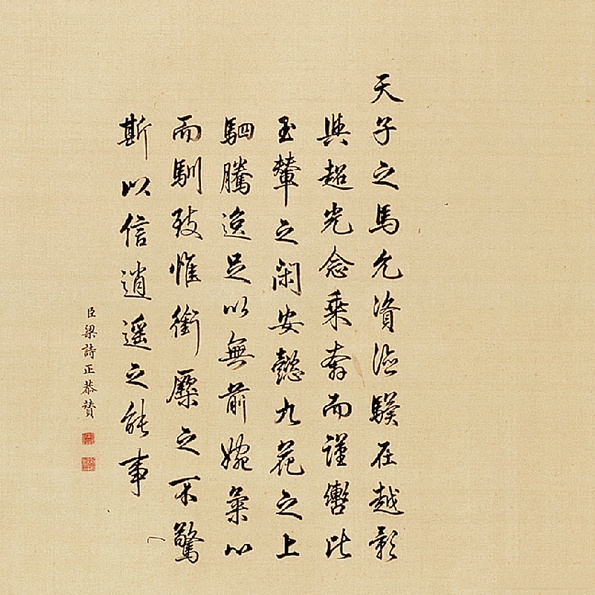 天子之馬允資德驥在越影
與超光念乘奔而謹轡比
玉輦之閑安懿九花之上
駟騰逸足以無前婉柔心
而馴致惟銜橛之不驚
斯以信逍遥之能事
臣梁詩正恭贊